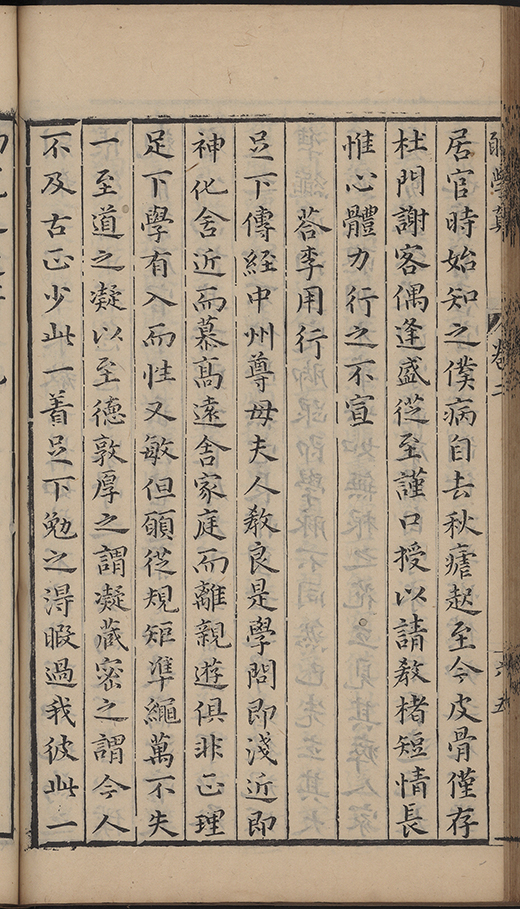 卷二
居官時始知之僕病自去秋瘧起至今皮骨僅存
杜門謝客偶逢盛從至謹口授以請教楮短情長
惟心體力行之不宣
荅李用行
足下傳經中州尊母夫人教良是學問即淺近即
神化舍近而慕髙遠舍家庭而離親遊俱非正理
足下學有入而性又敏但願從規矩準繩萬不失
一至道之凝以至德敦厚之謂凝藏密之謂今人
不及古正少此一着足下勉之得暇過我彼此一